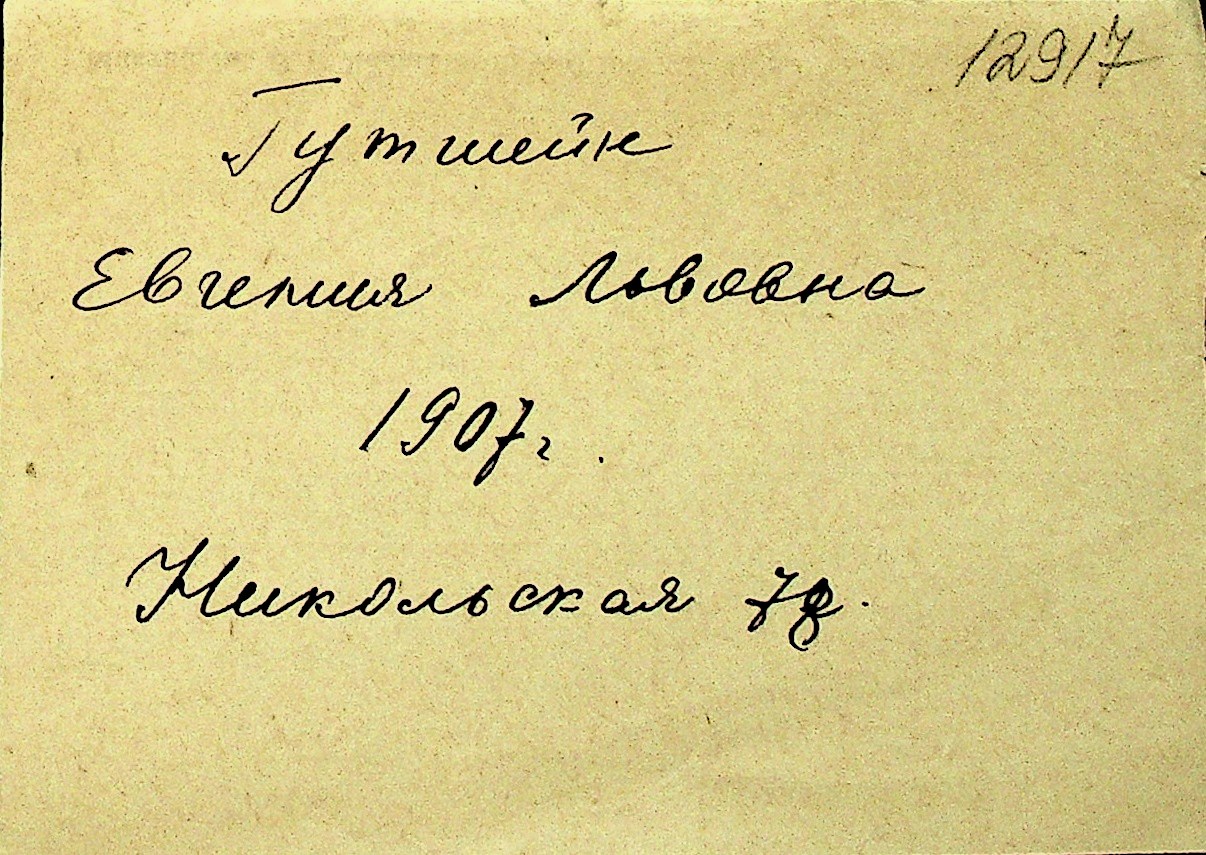 12917
Гутшейн
Евгения Львовна
1907г.
Никольская